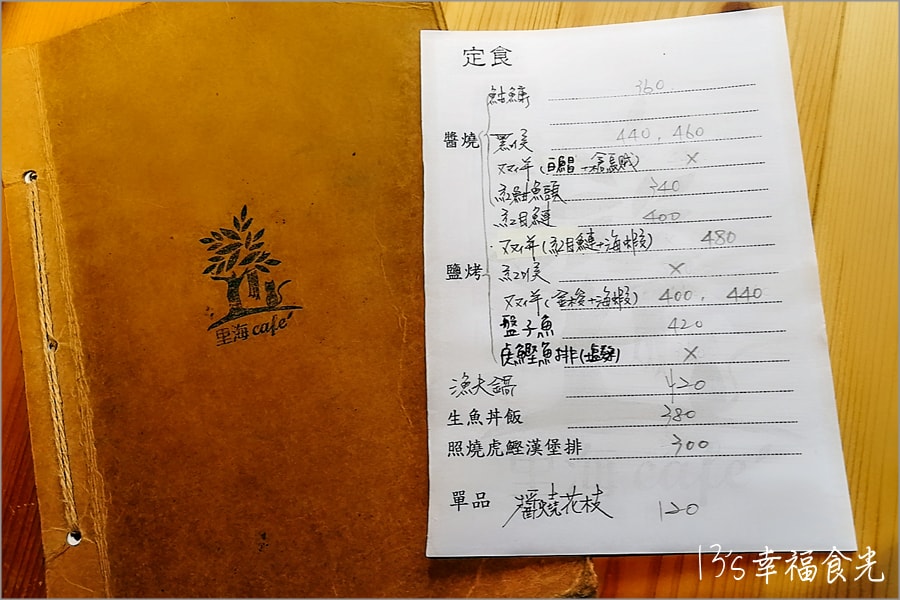 里海cafe
定食
醬燒
魽魚 360
黑喉 440、460
双拼( +烏賊) X
紅魽魚頭 340
紅目鰱 400
双拼(紅目鰱+海蝦) 480
鹽烤
紅喉 X
双拼(金梭+海蝦) 400、440
盤子魚 420
虎鰹魚排(塩麴) X
漁夫鍋 420
生魚丼飯 380
照燒虎鰹漢堡排 300
單品 醬燒花枝 120
13's幸福食光